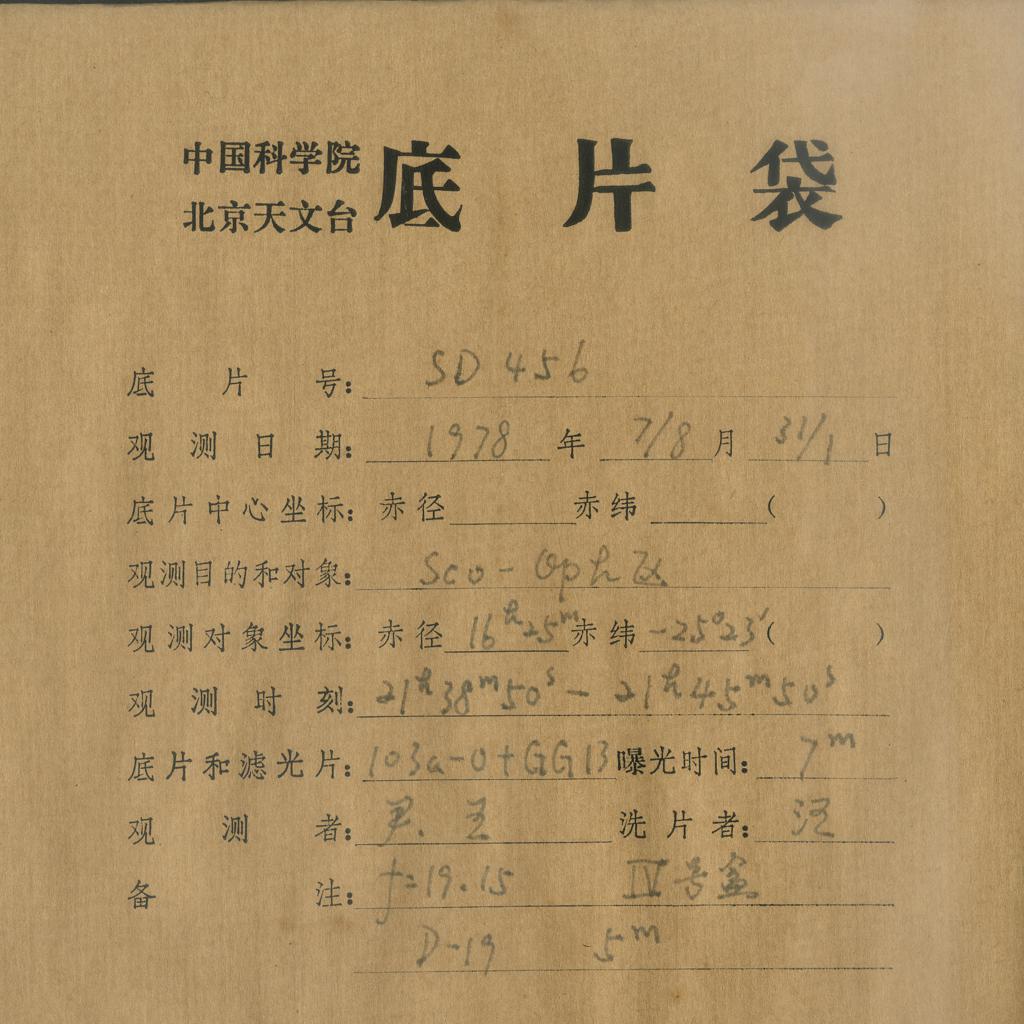 中国科学院
北京天文台
底片袋
底片号: SD 456
观测日期: 1978 年 7/8 月 31/1 日
底片中心坐标: 赤径 赤纬 ( )
观测目的和对象: Sco - Oph 区
观测对象坐标: 赤径 16h25m 赤纬 -25°23′ ( )
观测时刻: 21h38m50s - 21h45m50s
底片和滤光片: 103a-O+GG13 曝光时间: 7m
观测者: 尹. 王 洗片者: 汪
备注: f=19.15 IV号盒
D-19 5m